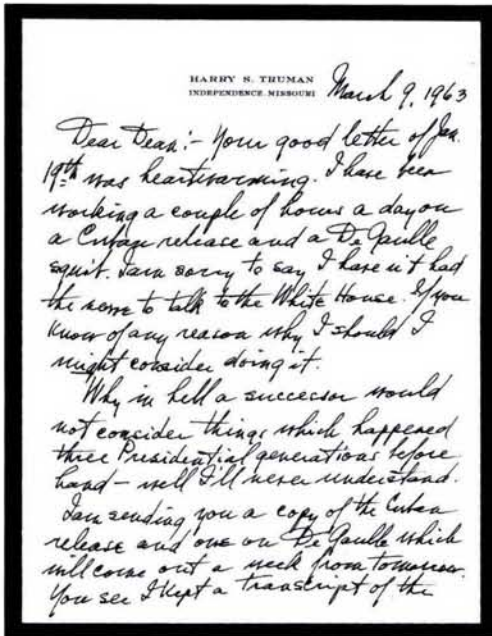 HARRY S. TRUMAN
INDEPENDENCE, MISSOURI
March 9, 1963
Dear Dean:- Your good letter of Jan.
19th was heartwarming. I have been
working a couple of hours a day on
a Cuban release and a De Gaulle
squit. I am sorry to say I haven't had
the nerve to talk to the White House. If you
know of any reason why I should I
might consider doing it.
Why in hell a successor would
not consider things which happened
three Presidential generations before
hand - well I'll never understand.
I am sending you a copy of the Cuban
release and one on De Gaulle which
will come out a week from tomorrow.
You see I kept a transcript of the